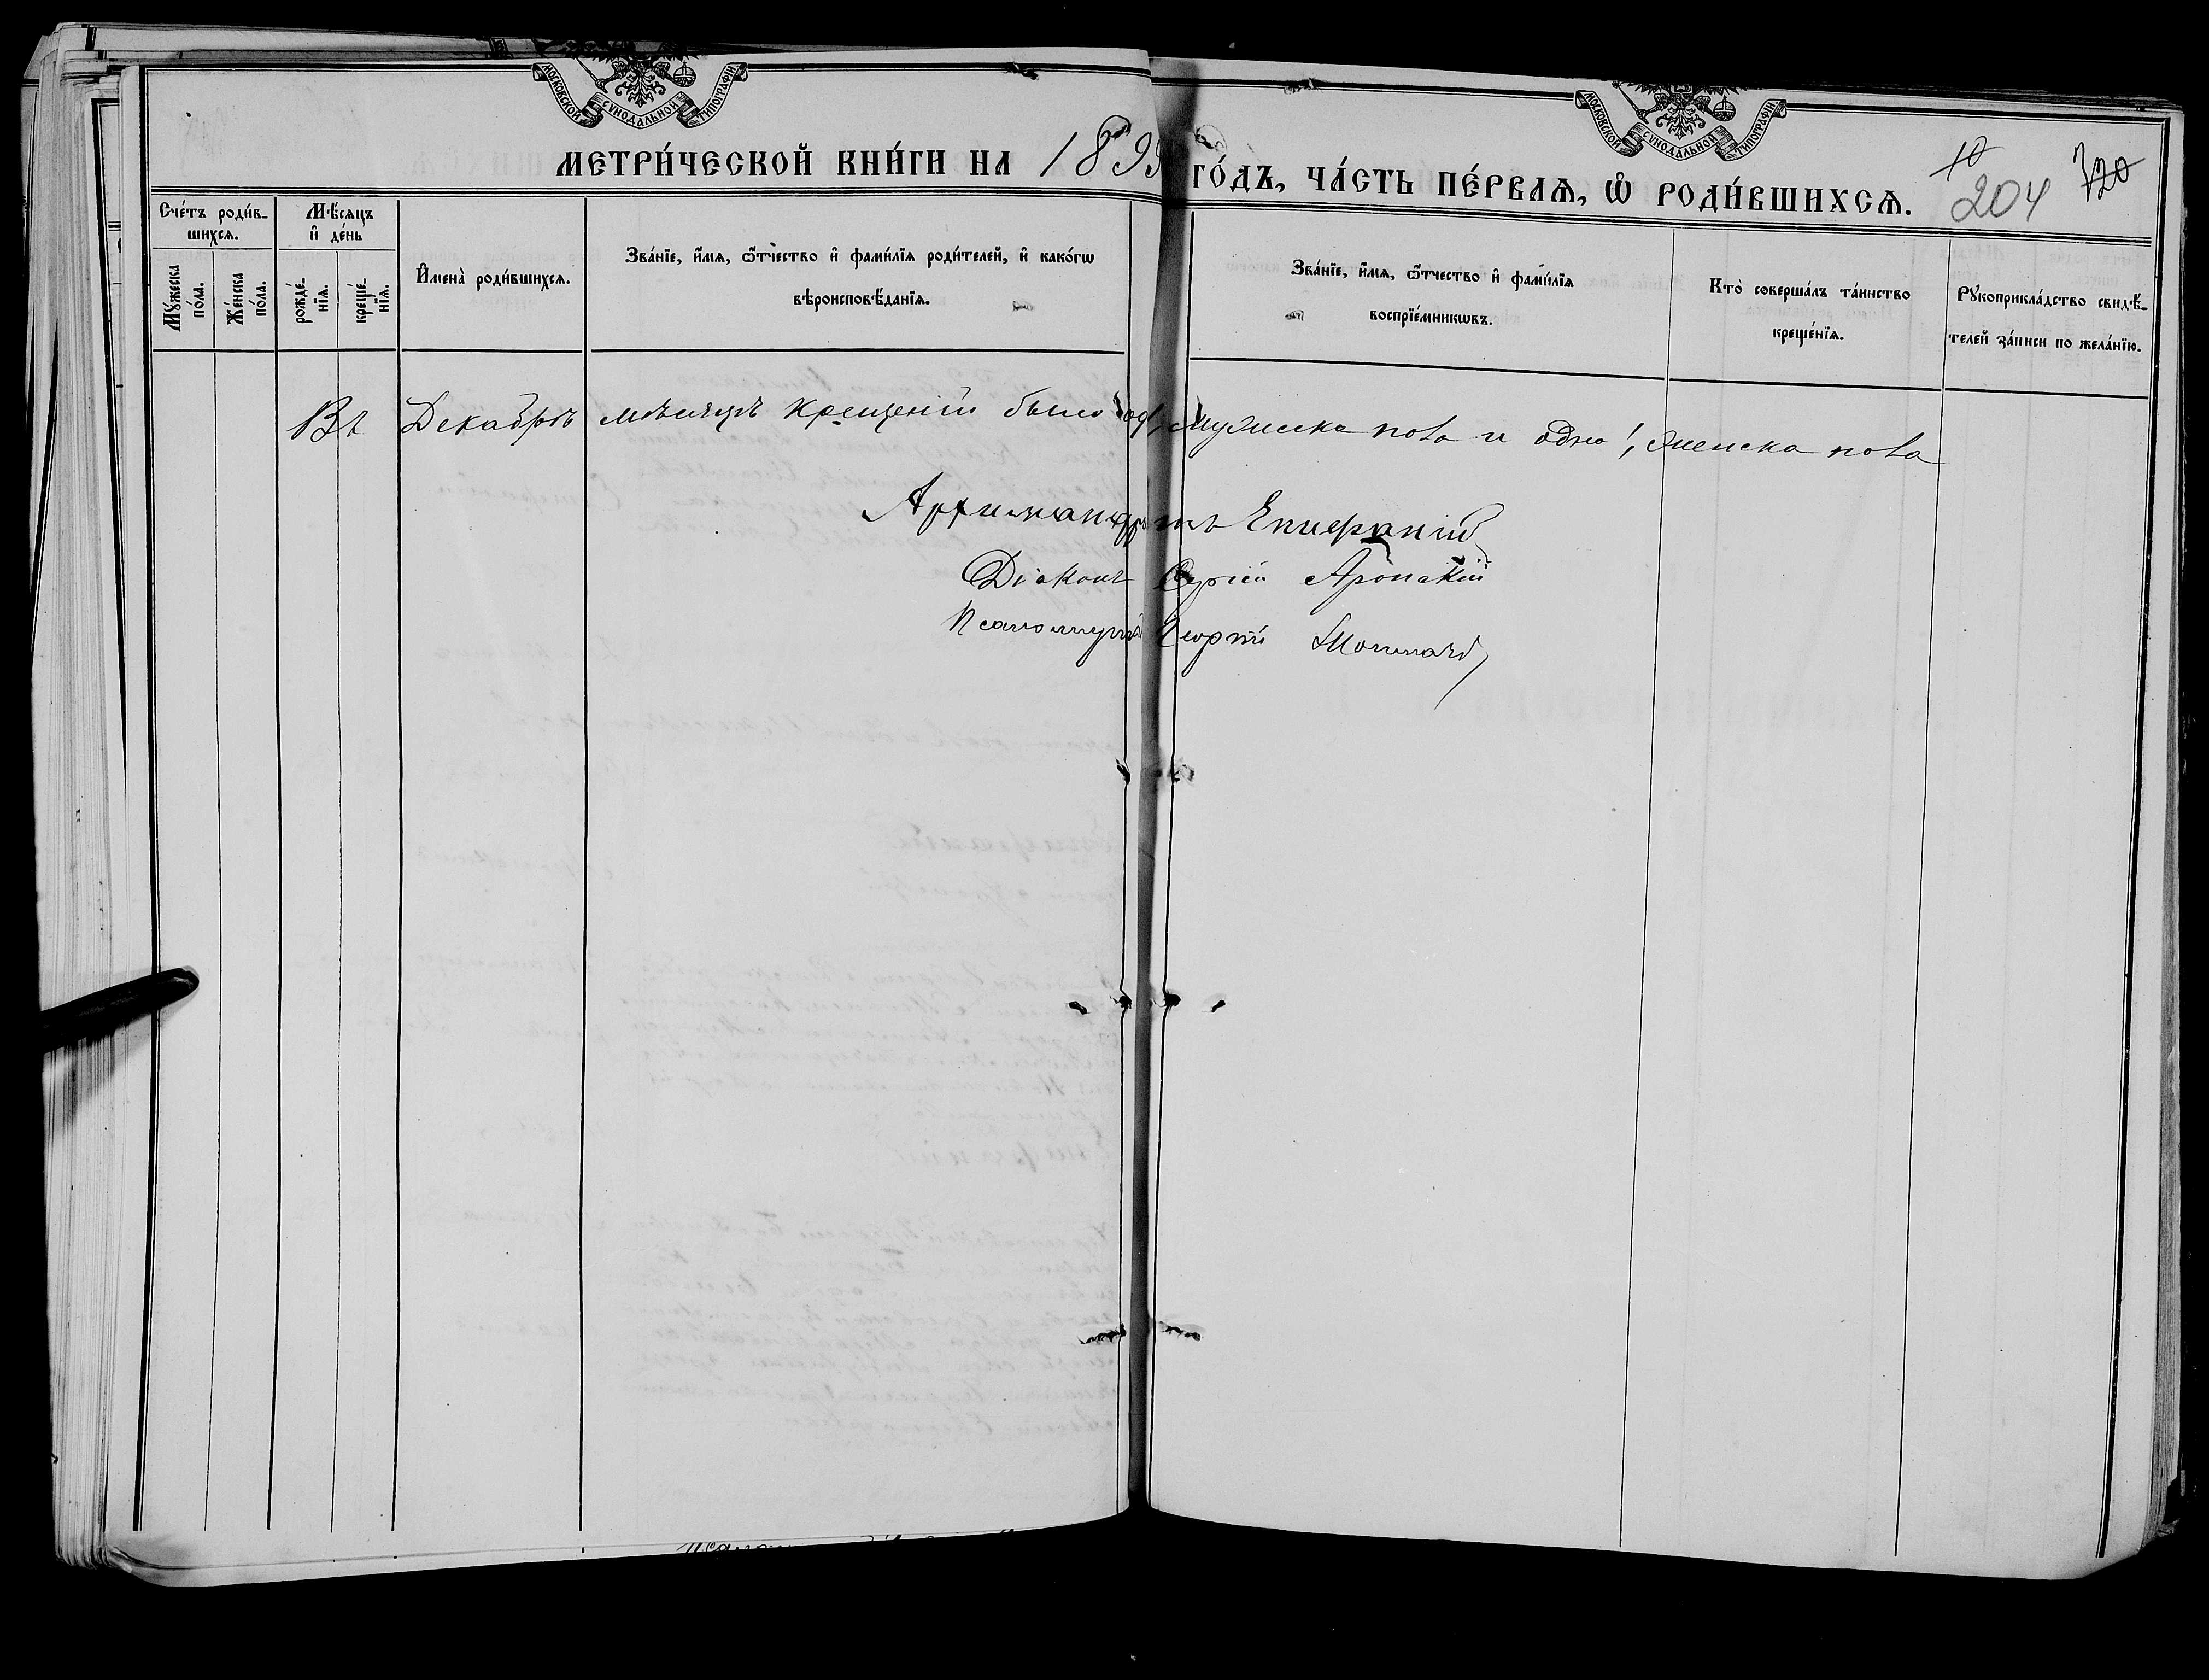 МОСКОВСКОЙ СѴНОДАЛЬНОЙ ТИПОГРАФІИ
МОСКОВСКОЙ СѴНОДАЛЬНОЙ ТИПОГРАФІИ
МЕТРИ́ЧЕСКОЙ КНИ́ГИ НА 1899 ГО́ДЪ, ЧА́СТЬ ПЕ́РВАѦ, Ѡ҆ РОДИ́ВШИХСѦ.
10
204 720
Сче́тъ роди́в-
шихсѧ.
Мꙋ́жеска
по́ла.
Же́нска
по́ла.
Мѣ́сѧцъ
и҆ де́нь
рожде́-
нїѧ.
креще́-
нїѧ.
И҆мена̀ роди́вшихсѧ.
Зва́нїе, и҆́мѧ, ѻ҆́тчество и҆ фами́лїѧ роди́телей, и҆ како́гѡ
вѣроисповѣ́данїѧ.
Зва́нїе, и҆́мѧ, ѻ҆́тчество и҆ фами́лїѧ
воспрїе́мникѡвъ.
Кто̀ соверша́лъ та́инство
креще́нїѧ.
Рꙋкоприкла́дство свидѣ́-
телей за́писи по жела́нїю.
Въ Декабрѣ мѣсяцѣ крещеній было мужеска пола и одно 1, женска пола
Архимандритъ Епифаній
Діаконъ Сергій
Псаломщикъ Георгій